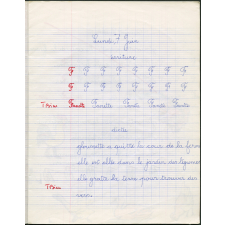 Lundi 7 Juin
écriture
F F F F F F F F
F F F F F F F F
T. bien
dictée
a quitté la cour de la ferme
elle est allée dans le jardin des légumes
elle gratte la terre pour trouver des
T. bien